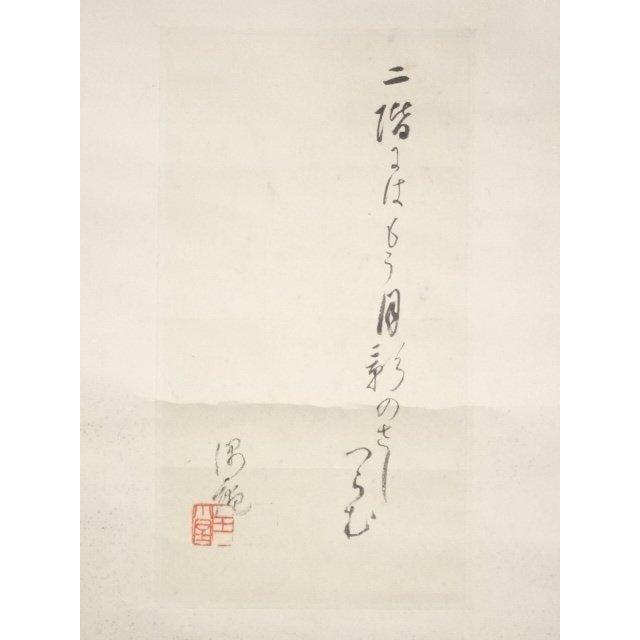 二階にはもう月影のさし
つらむ